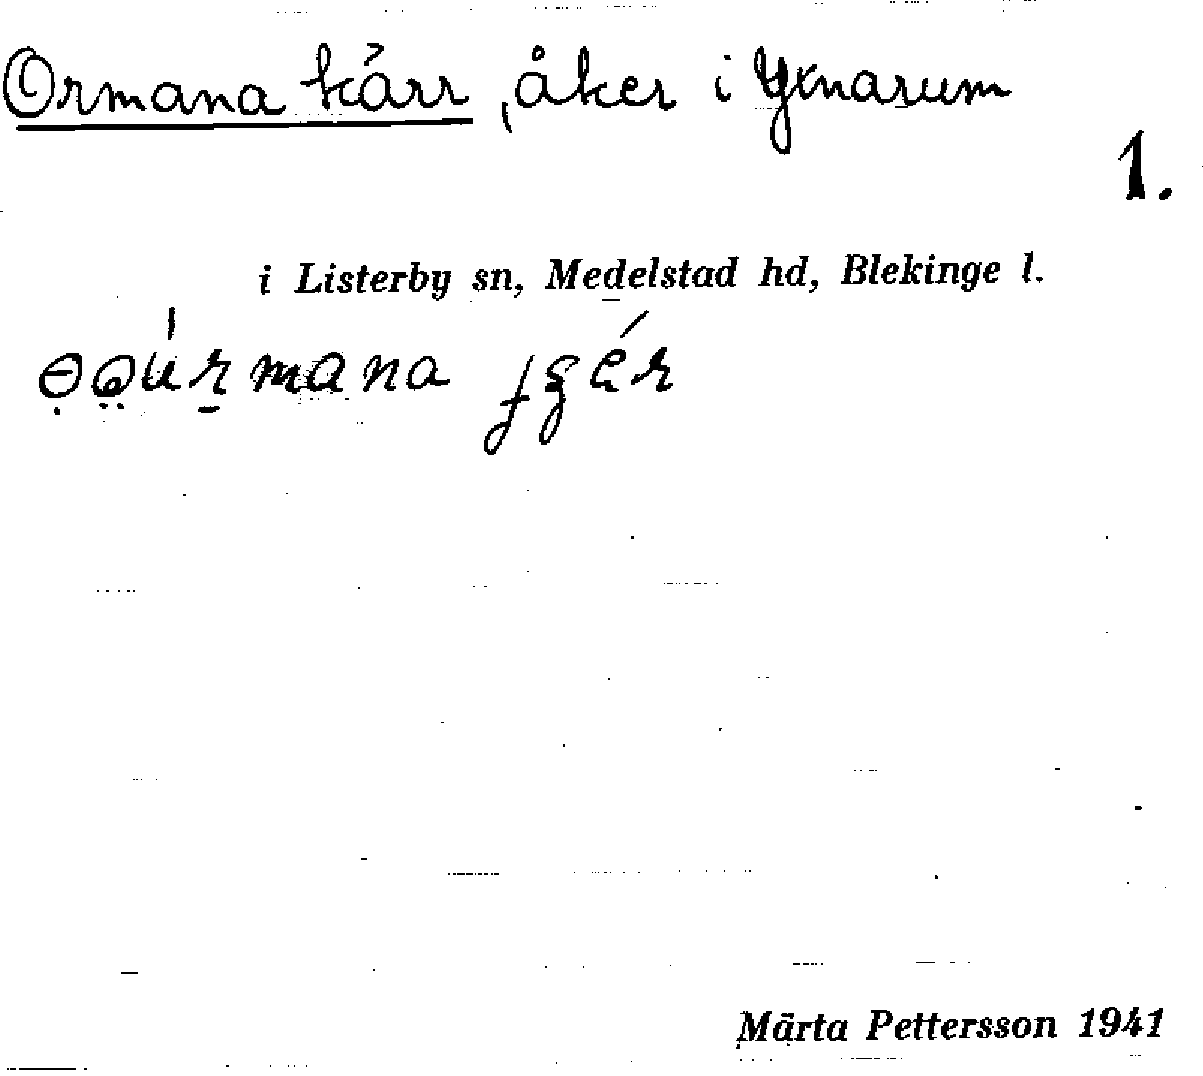 Ormana kärr, åker i Yxnarum
1.
i Listerby sn, Medelstad hd, Blekinge l.
Märta Pettersson 1941